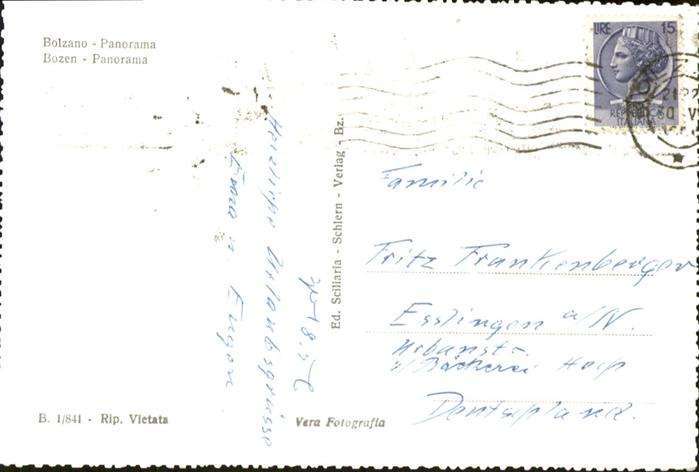 Bolzano - Panorama
Bozen - Panorama
LIRE 15
REPUBBLICA
ITALIANA
Herzliche Urlaubsgrüsse
Emma u. Eugen
Ed. Sciliaria - Schlern - Verlag - Bz.
Familie
Fritz Frankenberger
Esslingen a/N.
Urbanstr.
b/Bäckerei
Deutschland.
B. 1/841 - Rip. Vietata
Vera Fotografia